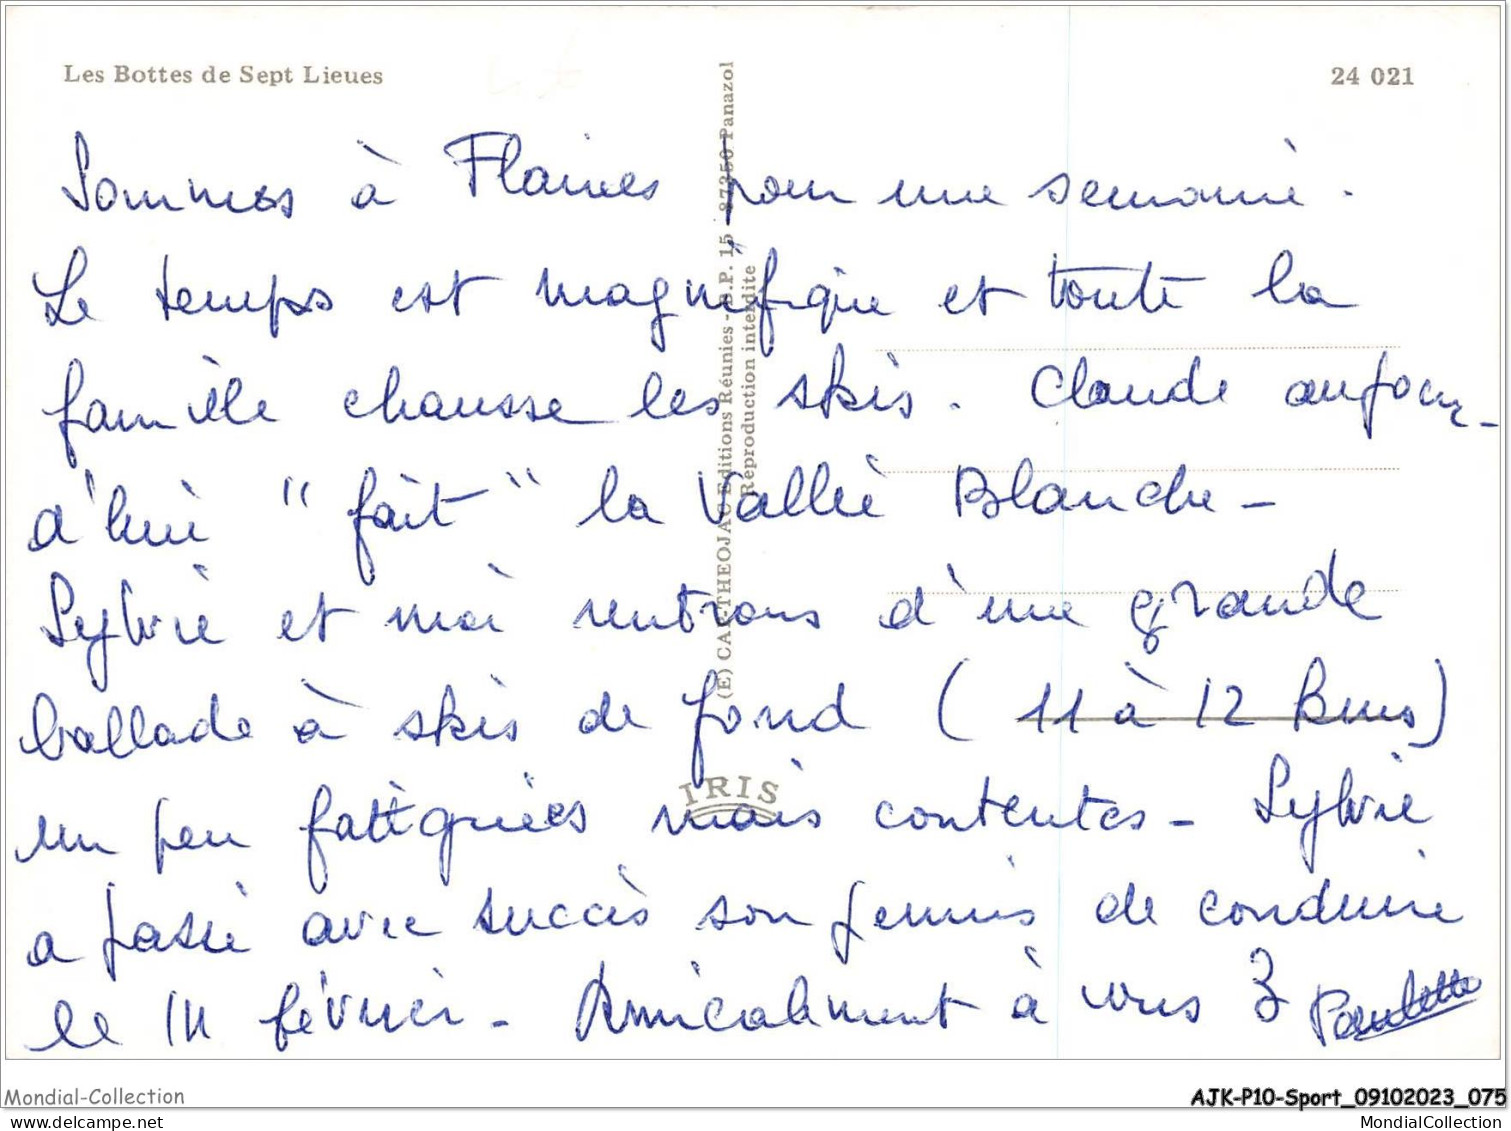 Les Bottes de Sept Lieues
24 021
Sommes à Flaines pour une semaine.
Le temps est magnifique et toute la
famille chausse les skis. Claude aujour-
d'hui "fait" la Vallée Blanche -
Sylvie et moi rentrons d'une grande
ballade à skis de fond ( 11 à 12 kms)
un peu fatiguées mais contentes - Sylvie
a passé avec succès son permis de conduire
le février - Amicalement à vous 3 Paulette
(E) CAP-THEOJAC Editions Réunies - B.P. 15 - 87350 Panazol
Reproduction interdite
IRIS
Mondial-Collection
AJK-P10-Sport_09102023_075
MondialCollection